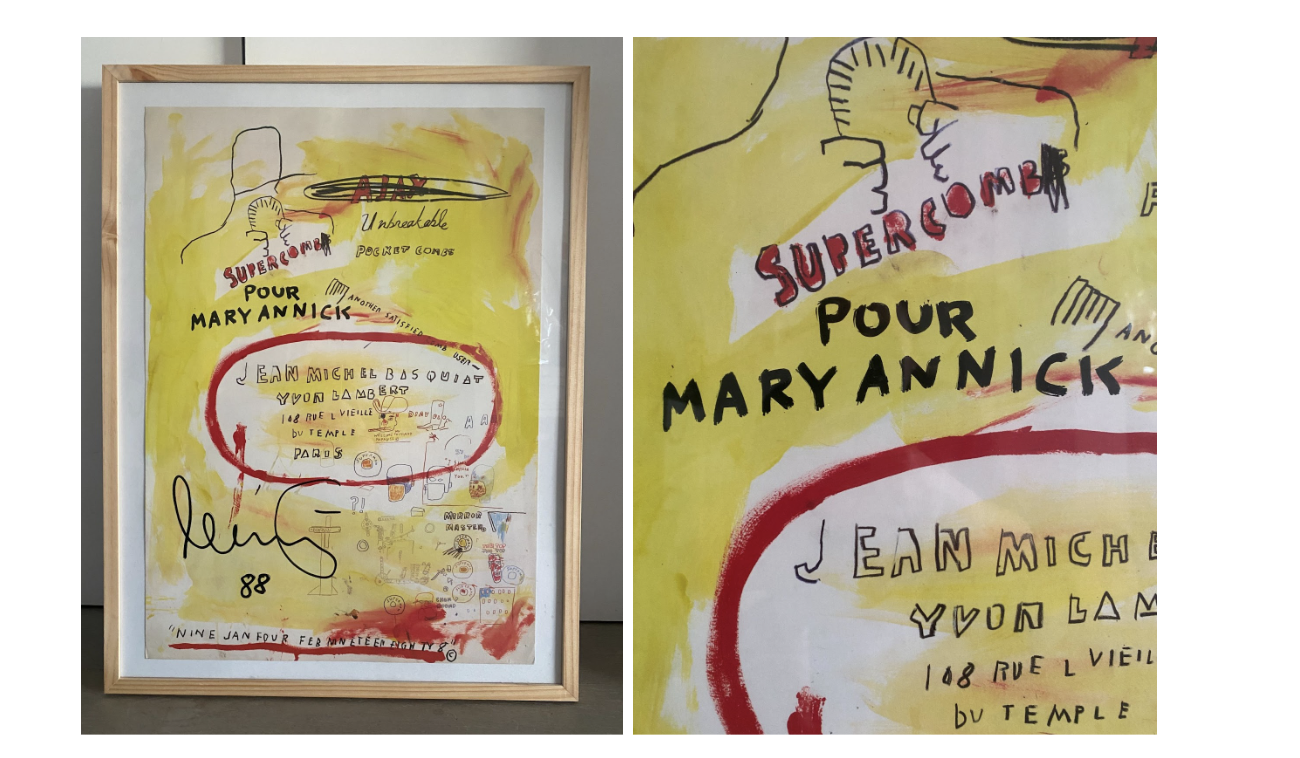 AJAX
Unbreakable
POCKET COMBS
SUPERCOMB
POUR
MARY ANNICK
ANOTHER SATISFIED
JEAN MICHEL BASQUIAT
YVON LAMBERT
108 RUE L VIEILLE
DU TEMPLE
PARIS
?!
88
MIRROR
MASTER
"NINE JAN FOUR FEB NINETEEN EIGHTY 8" ©
SUPERCOMB
POUR
MARY ANNICK
ANO
JEAN MICHE
YVON LAM
108 RUE L VIEIL
DU TEMPLE